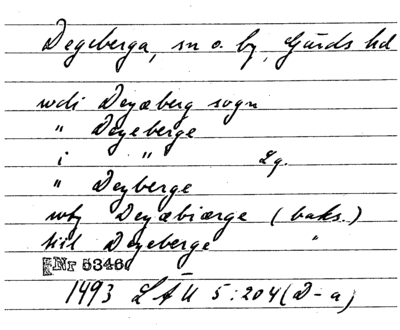 Degeberga, sn o. by, Gärds hd
udi Deyæberg sogn
" Deyeberge
i " Lg.
" Deyberge
wby Deyæbiærge (baks.)
till Deyeberge "
Nr 5346
1493 LÄU 5:204 (D-a)